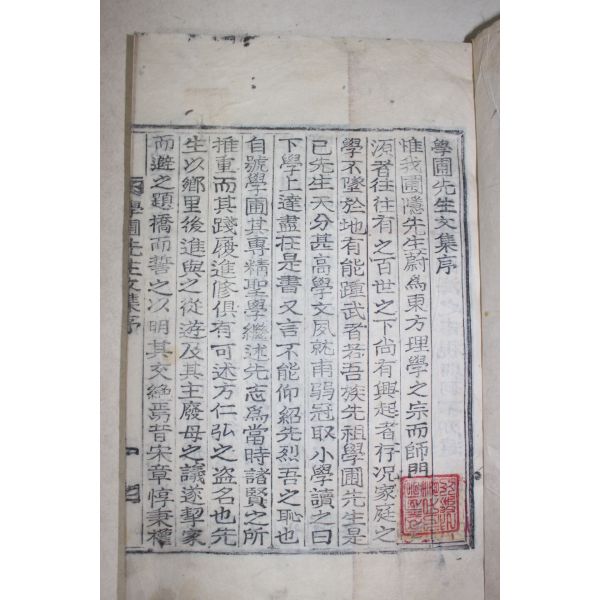 學圃先生文集序
惟我圃隱先生蔚爲東方理學之宗而師門
源者往往有之百世之下尚有興起者存况家庭之
學不墜於地有能踵武者若吾族先祖學圃先生是
已先生天分甚高學文夙就甫弱冠取小學讀之曰
下學上達盡在是書又言不能仰紹先烈吾之恥也
自號學圃其專精聖學繼述先志爲當時諸賢之所
推重而其踐履進修俱有可述方仁弘之盜名也先
生以鄉里後進與之從遊及其主廢母之議遂挈家
而避之題橋而誓之以明其交絶焉昔宋章惇秉權
學圃先生文集序
一